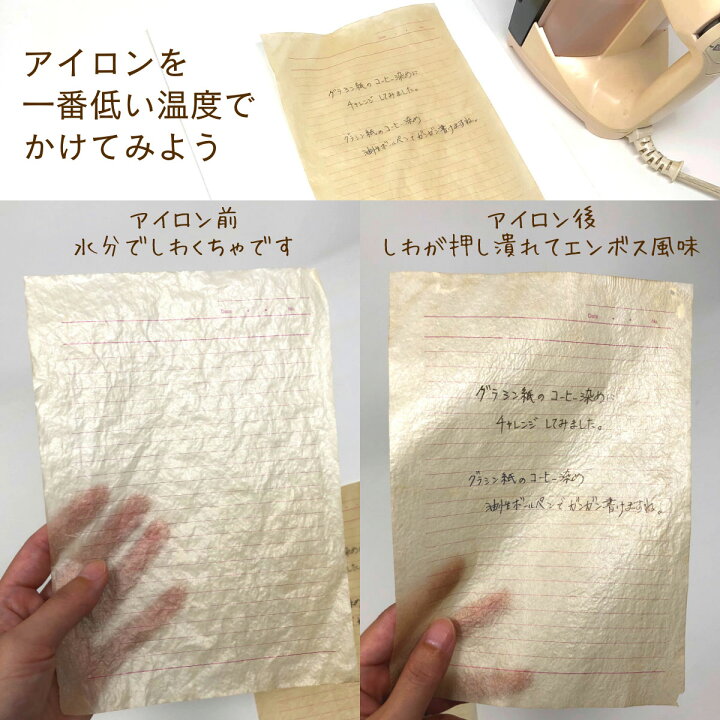 アイロンを
一番低い温度で
かけてみよう
グラシン紙のコーヒー染めに
チャレンジしてみました。
グラシン紙のコーヒー染め
油性ボールペンでガンガン書けますね。
アイロン前
水分でしわくちゃです
Date ・ ・ No.
アイロン後
しわが押し潰れてエンボス風味
Date ・ ・ No.
グラシン紙のコーヒー染めに
チャレンジしてみました。
グラシン紙のコーヒー染め
油性ボールペンでガンガン書けますね。